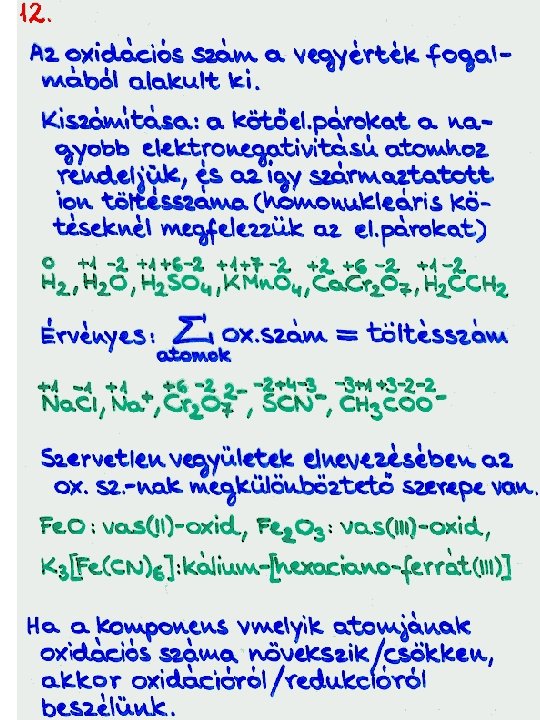 12.
Az oxidációs szám a vegyérték fogal-
mából alakult ki.
Kiszámítása: a kötőel.párokat a na-
gyobb elektronegativitású atomhoz
rendeljük, és az így származtatott
ion töltésszáma (homonukleáris kö-
téseknél megfelezzük az el.párokat)
0 +1 -2 +1+6-2 +1+7-2 +2 +6 -2 +1-2
H₂, H₂O, H₂SO₄, KMnO₄, CaCr₂O₇, H₂CCH₂
Érvényes: Σ ox.szám = töltésszám
atomok
+1 -1 +1 +6 -2 -2+4-3 -3+1+3-2-2
NaCl, Na⁺, Cr₂O₇²⁻, SCN⁻, CH₃COO⁻
Szervetlen vegyületek elnevezésében az
ox. sz.-nak megkülönböztető szerepe van.
FeO: vas(II)-oxid, Fe₂O₃: vas(III)-oxid,
K₃[Fe(CN)₆]:kálium-[hexaciano-ferrát(III)]
Ha a komponens vmelyik atomjának
oxidációs száma növekszik/csökken,
akkor oxidációról/redukcióról
beszélünk.